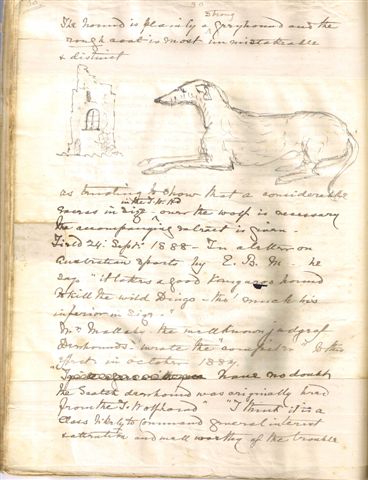 30
strong
The hound is plainly a greyhound and the
rough coat is most unmistakeable
& distinct
as tending to show that a considerable
in the I. W. Hd
increase in size over the wolf is necessary
the accompanying extract is given -
Field 24. Sept. 1888 - In a letter on
Australian sports by E. B. M. he
says "it takes a good Kangaroo hound
to kill the wild Dingo - tho' much his
inferior in size."
Mr. the well known judge of
Deerhounds wrote the to this
effect in October 1884
"I have no doubt
the Scotch deerhound was originally bred
from the I. Wolfhound" "I think it is a
class likely to command general interest
& attention and well worthy of the trouble